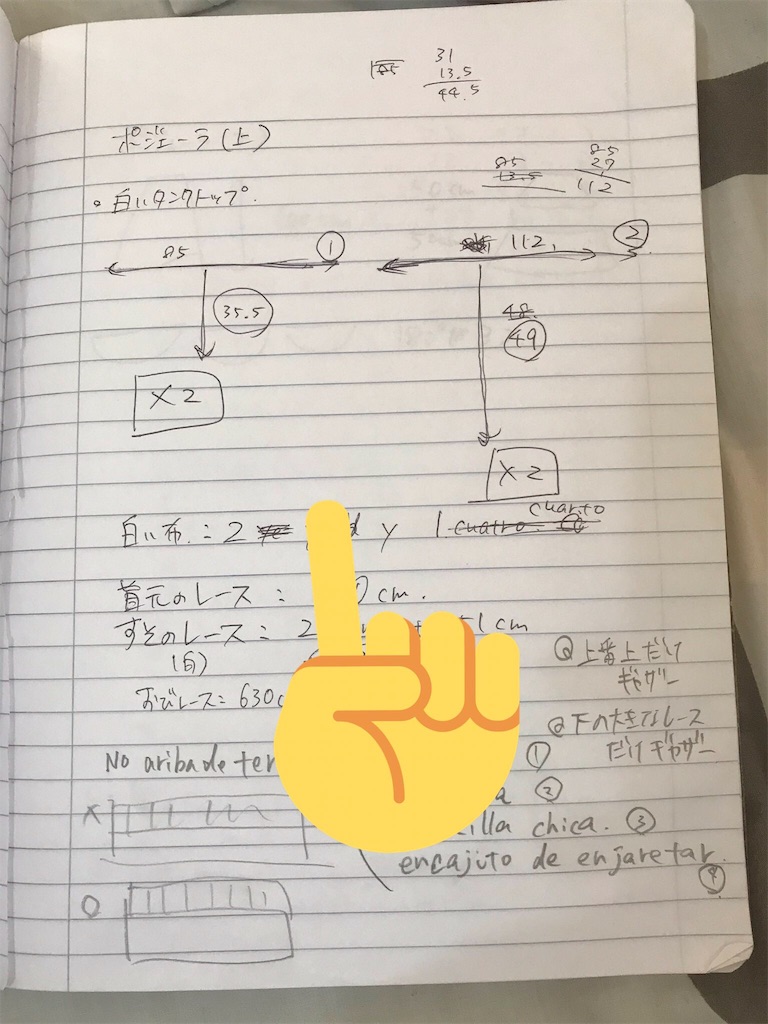 31
13.5
44.5
ポジェーラ(上)
85
13.5
85
27
112
。白いタンクトップ。
85 ①
112 ②
35.5
48
49
×2
×2
cuarto
白い布:2 y 1 cuatro
首元のレース: cm.
すそのレース:2 cm
(白)
おびレース=630
@上番上だけ
ギャザー
@下の大きなレース
だけギャザー
No aribade ①
②
chica. ③
encajito de enjaretar.
×
○